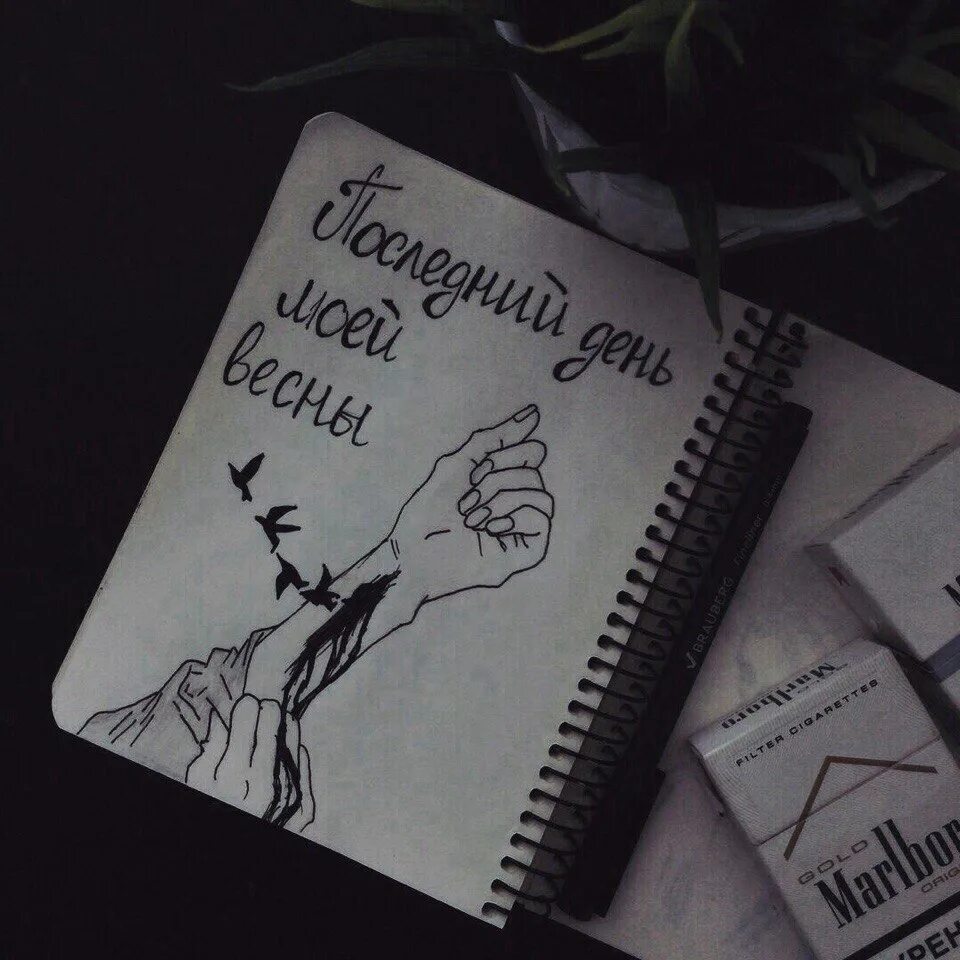 Последний день
моей
весны
BRAUBERG
Marlboro
FILTER CIGARETTES
GOLD
Marlboro